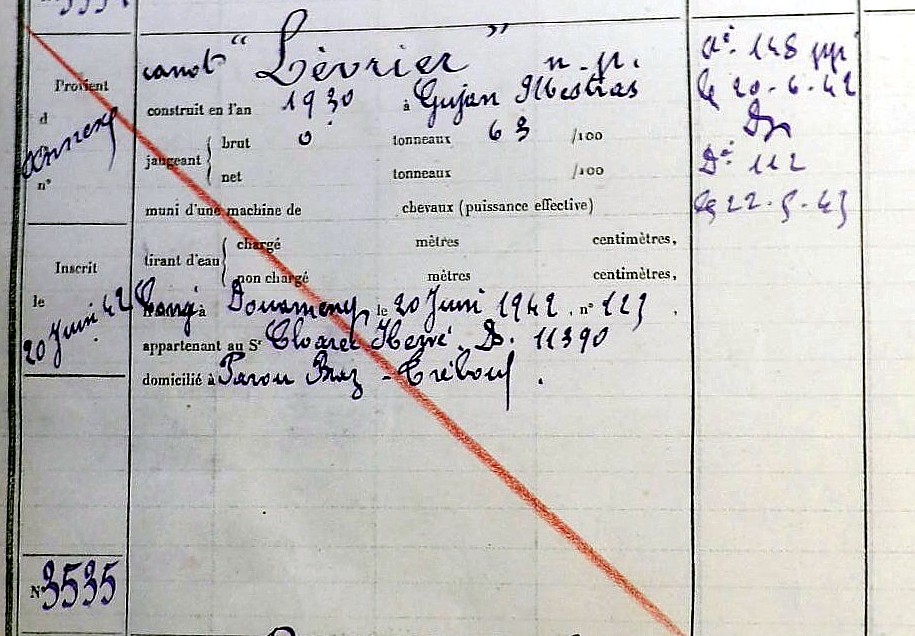 Provient
d
annexe
n°
canot " Lévrier " n.p.
construit en l'an 1930 à Gujan Mestras
jaugeant { brut 0 tonneaux 63 /100
net tonneaux /100
muni d'une machine de chevaux (puissance effective)
tirant d'eau { chargé mètres centimètres,
non chargé mètres centimètres,
à Douarnenez le 20 Juin 1942, n° 123,
appartenant au Sr Cloarec Hervé D. 11390
domicilié à Parou Braz - Tréboul.
Inscrit
le
20 Juin 42
N° 3535
148
le 20.6.42
Dz
Dé 112
le 22-5-43